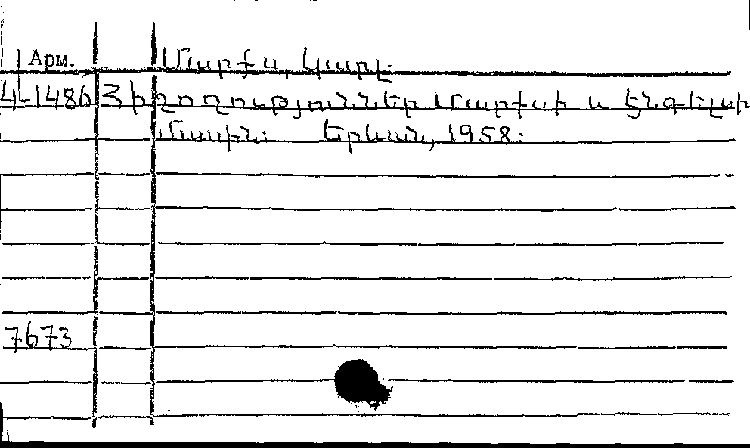 Арм. Մարքս, Կարլ.
4-1486 Հիշողություններ Մարքսի և Էնգելսի
մասին: Երևան, 1958:
7673